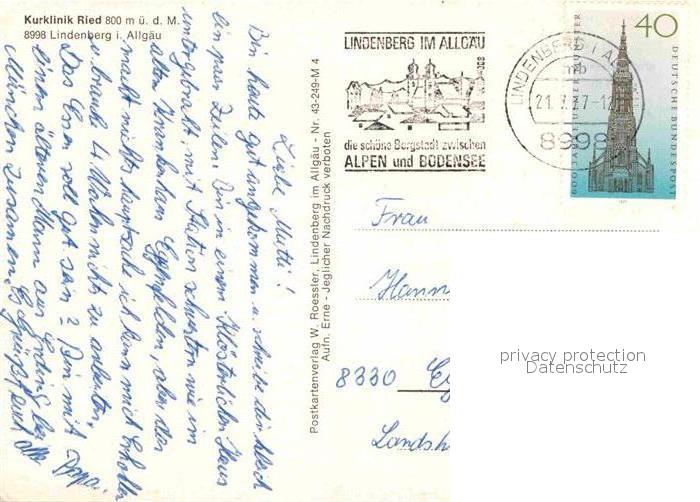 Kurklinik Ried 800 m ü. d. M.
8998 Lindenberg i. Allgäu
Liebe Mutti!
Bin heute gut angekommen u. schreibe dir gleich
ein paar Zeilen. Bin in einem Klösterlichen Haus
untergebracht, mit Station schwestern wie im
alten Krankenhaus Eggenfelden, aber das
macht nichts hauptsache ich kann mich erholen
u. brauch 4 Wochen nichts zu arbeiten.
Das Essen soll gut sein? Bin mit
einem ältern Mann aus Erding bei
München zusammen. Es grüßt euch
alle Papa.
Postkartenverlag W. Roessler, Lindenberg im Allgäu - Nr. 43-249-M 4
Aufn. Erne - Jeglicher Nachdruck verboten
LINDENBERG IM ALLGÄU
die schöne Bergstadt zwischen
ALPEN und BODENSEE
LINDENBERG I ALLG
mb
8998
40
600 JAHRE ULMER MÜNSTER
DEUTSCHE BUNDESPOST
1977
Frau
Hann
8330 Eg
Landsh
privacy protection
Datenschutz